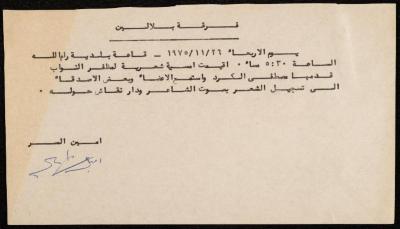 فرقة بلالين
يوم الاربعاء ١٩٧٥/١١/٢٦ - قاعة بلدية رام الله
الساعة ٥:٣٠ مساء . اقيمت امسية شعرية لمظفر النواب
قدمها مصطفى الكرد واستمع الاعضاء وبعض الاصدقاء
الى تسجيل الشعر بصوت الشاعر ودار نقاش حوله .
امين السر